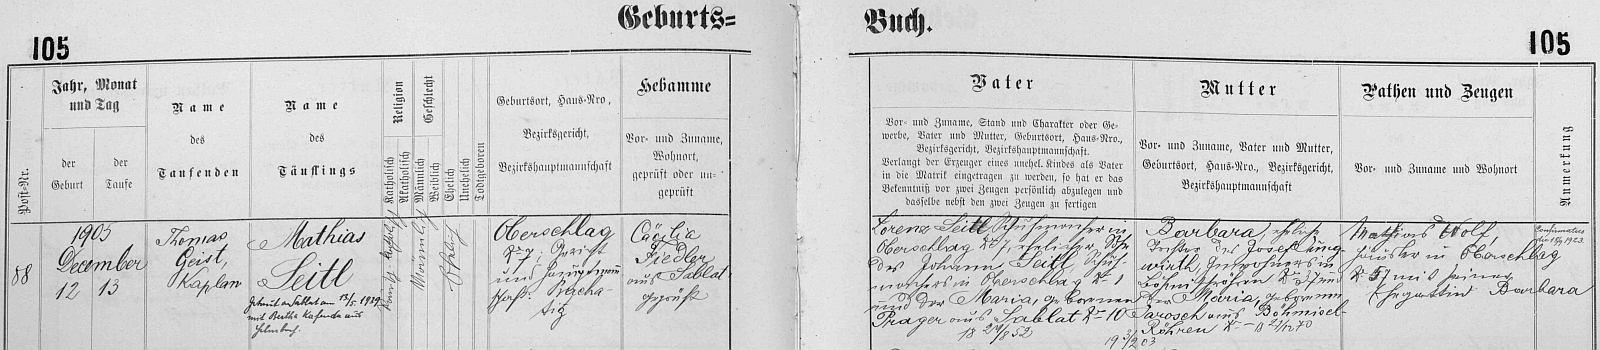 Geburts=
Buch.
105
105
Post-Nr.
Jahr, Monat
und Tag
der
Geburt
der
Taufe
Name
des
Taufenden
Name
des
Täuflings
Religion
Katholisch
Akatholisch
Geschlecht
Männlich
Weiblich
Ehelich
Unehelich
Todtgeboren
Geburtsort, Haus-Nro,
Bezirksgericht,
Bezirkshauptmannschaft
Hebamme
Vor- und Zuname,
Wohnort,
geprüft oder un-
geprüft
Vater
Vor- und Zuname, Stand und Charakter oder Ge-
werbe, Vater und Mutter, Geburtsort, Haus-Nro.,
Bezirksgericht, Bezirkshauptmannschaft.
Verlangt der Erzeuger eines unehel. Kindes als Vater
in die Matrik eingetragen zu werden, so hat er das
Bekenntniß vor zwei Zeugen persönlich abzulegen und
dasselbe nebst den zwei Zeugen zu fertigen
Mutter
Vor- und Zuname, Vater und Mutter,
Geburtsort, Haus-Nro., Bezirksgericht,
Bezirkshauptmannschaft
Pathen und Zeugen
Vor- und Zuname und Wohnort
Anmerkung
88
1905
December
12 13
Thomas
Geist,
Kaplan
Mathias
Seitl
Männlich
Oberschlag
No 7, Gericht
und Bezirkshaupt
Pracha-
titz
Cäcilie
Fiedler
aus Sablat
geprüft
Lorenz Seitl, Schuhmacher in
Oberschlag No 7, ehelicher Sohn
des Johann Seitl, Schuh-
machers in Oberschlag No 1
und der Maria, geborenen
Prager aus Sablat No 10
18 /8 52
Barbara, ehel.
Tochter des Josef Jung
wirth, Inwohners in
Böhmischröhren No 37 und
der Maria, geborenen
Jarosch aus Böhmisch-
Röhren
19 3/2 03
Mathias Wolf,
Häusler in Oberschlag
No 57 mit seiner
Ehegattin Barbara